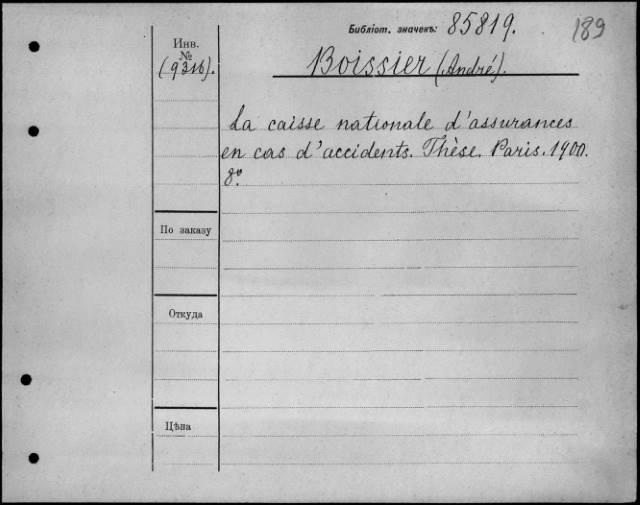 Библіот. значекъ: 85819.
189
Инв.
№
(9316).
Boissier (André).
La caisse nationale d'assurances
en cas d'accidents. Thèse. Paris. 1900.
8º.
По заказу
Откуда
Цѣна